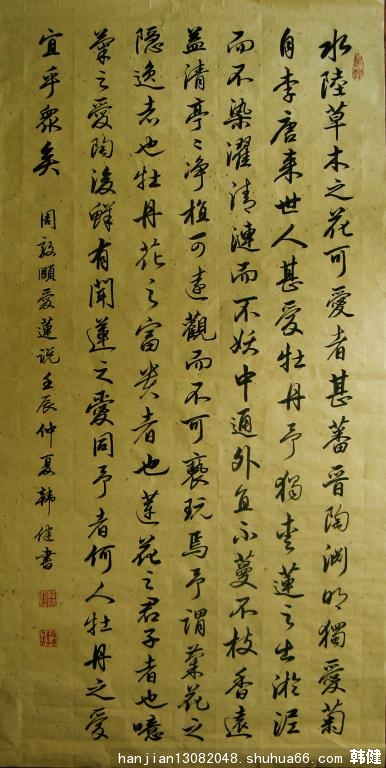 水陸草木之花可愛者甚蕃晋陶渊明獨愛菊
自李唐来世人甚爱牡丹予獨爱蓮之出淤泥
而不染濯清漣而不妖中通外直不蔓不枝香遠
益清亭々净植可遠觀而不可褻玩焉予謂菊花之
隐逸者也牡丹花之富贵者也蓮花之君子者也噫
菊之愛陶後鲜有聞蓮之愛同予者何人牡丹之爱
宜乎衆矣 周敦頤愛蓮说壬辰仲夏韩健書
hanjian13082048.shuhua66.com 韩健